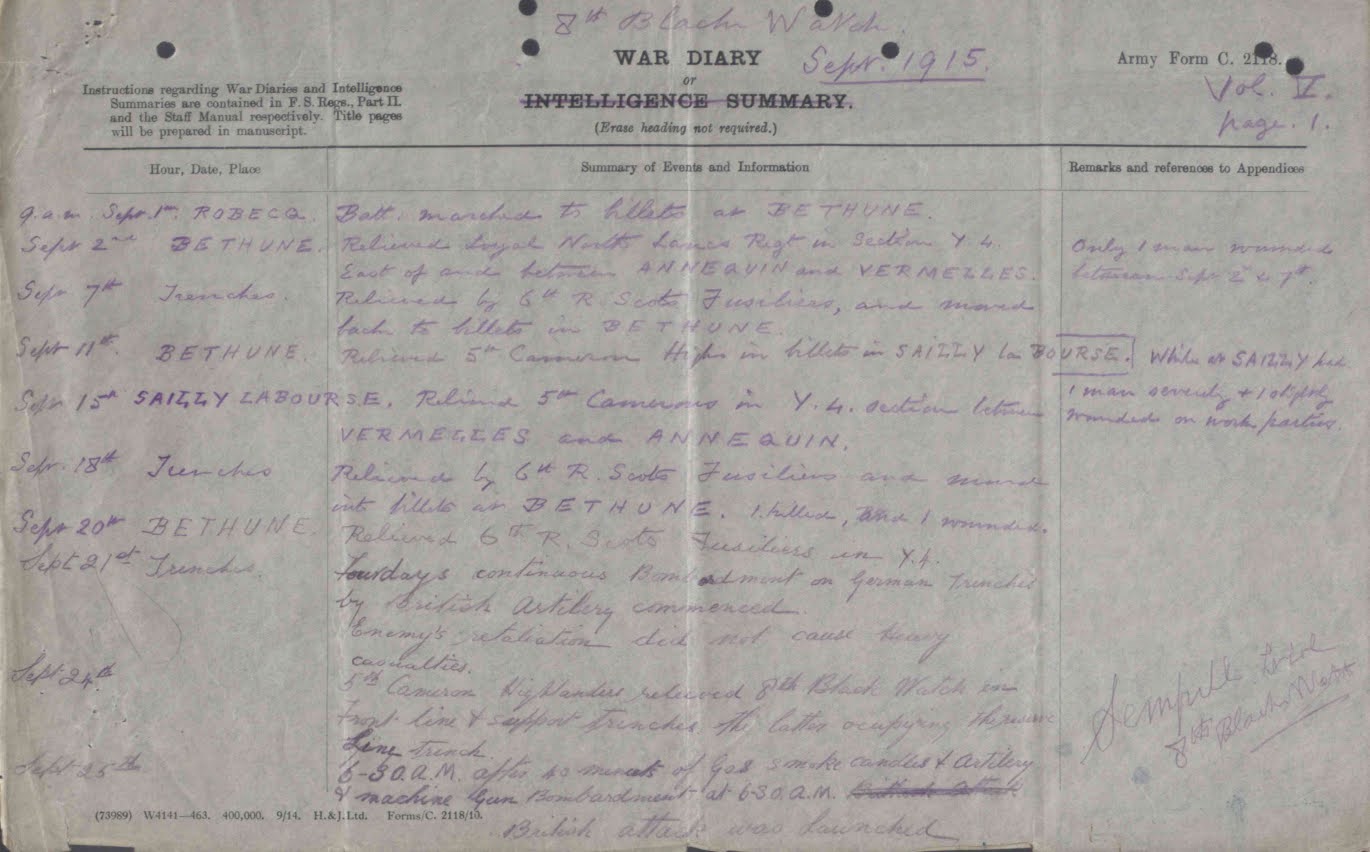 8th Black Watch.
WAR DIARY
Sept. 1915.
Army Form C. 2118.
or
INTELLIGENCE SUMMARY.
(Erase heading not required.)
Vol. V.
page. 1.
Instructions regarding War Diaries and Intelligence
Summaries are contained in F. S. Regs., Part II.
and the Staff Manual respectively. Title pages
will be prepared in manuscript.
Hour, Date, Place
Summary of Events and Information
Remarks and references to Appendices
9. a.m. Sept. 1st. ROBECQ. Batt. marched to billets at BETHUNE.
Sept 2nd BETHUNE. Relieved Loyal North Lancs Regt in Section Y.4.
East of and between ANNEQUIN and VERMELLES.
Only 1 man wounded
between Sept 2 & 7th.
Sept 7th Trenches. Relieved by 6th R. Scots Fusiliers, and moved
back to billets in BETHUNE.
Sept 11th. BETHUNE. Relieved 5th Cameron Highrs in billets in SAILLY la BOURSE.
While at SAILLY had
1 man severely & 1 slightly
wounded on work parties.
Sept 15th SAILLY LABOURSE. Relieved 5th Camerons in Y.4. section between
VERMELLES and ANNEQUIN.
Sept. 18th Trenches Relieved by 6th R. Scots Fusiliers and moved
into billets at BETHUNE. 1 killed, and 1 wounded.
Sept 20th BETHUNE. Relieved 6th R. Scots Fusiliers in Y.4.
Sept 21st Trenches. Four days continuous Bombardment on German Trenches
by British Artilery commenced.
Enemy's retaliation did not cause heavy
casualties.
Sept 24th 5th Cameron Highlanders relieved 8th Black Watch in
Front line & support trenches. the latter ocupying the reserve
Line trench.
Sept 25th 6-30.A.M. after 40 minuts of Gas smoke candles & Artilery
& machine Gun Bombardment at 6-30.A.M.
British attack was launched
Sempill. Lt Col
8th Black Watch
(73989) W4141—463. 400,000. 9/14. H.&J.Ltd. Forms/C. 2118/10.